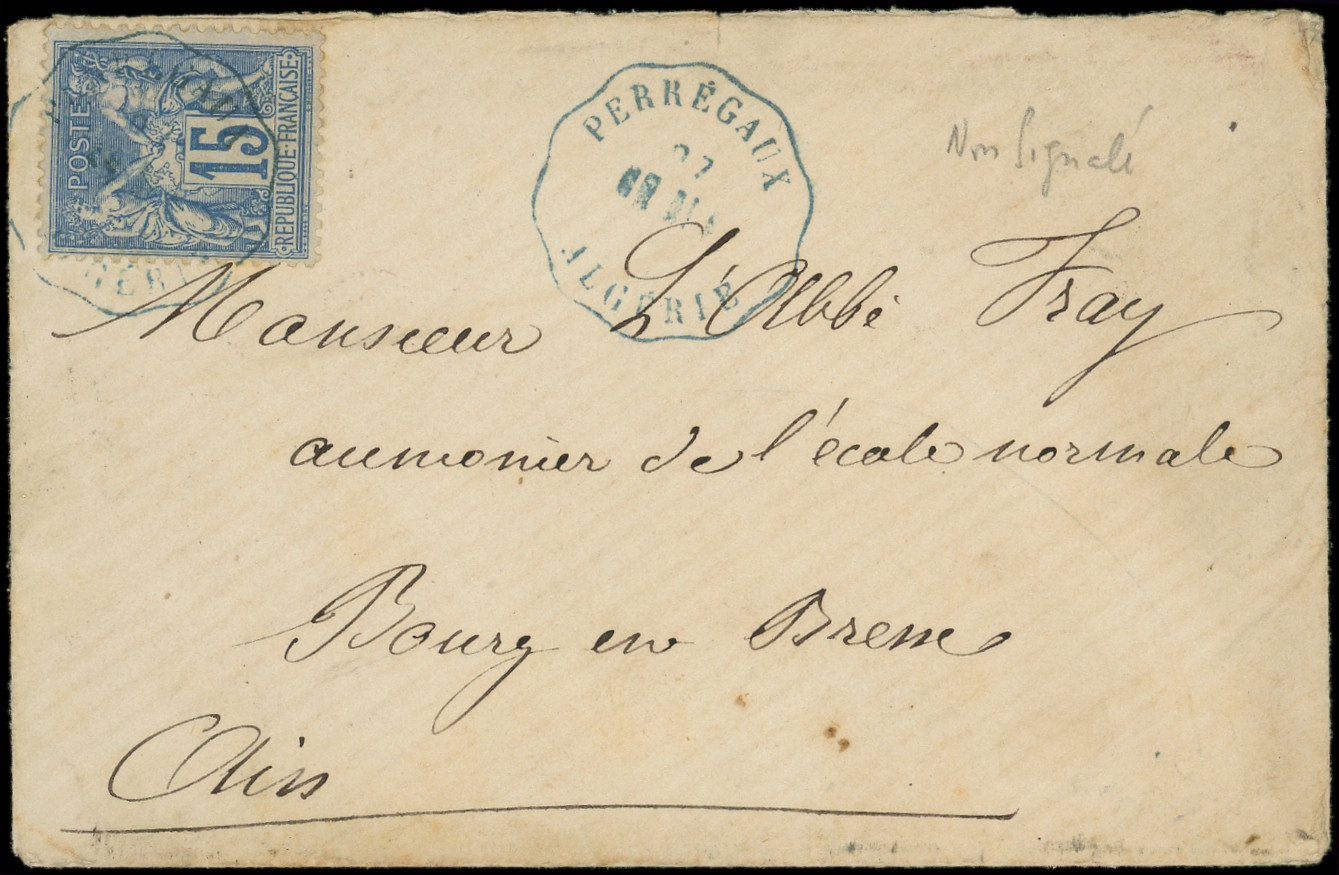 POSTE
15
REPUBLIQUE·FRANÇAISE
PERRÉGAUX
27
ALGÉRIE
Non Signalé
Monsieur L'Abbé Fray
aumonier de l'école normale
Bourg en Bresse
Ain